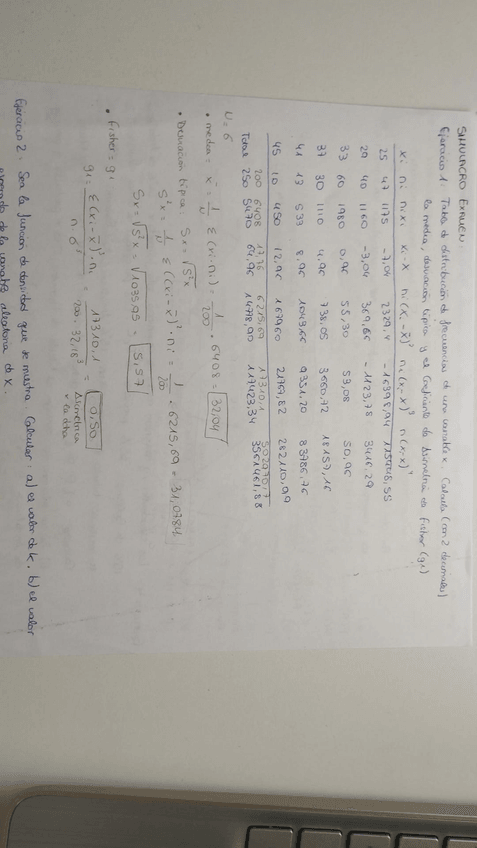 SIMULACRO EXAMEN.
Ejercicio 1: Tabla de distribución de frecuencias de una variable x. Calcula (con 2 decimales)
la media, desviación típica y el coeficiente de asimetría de Fisher (g1)
xi ni nixi xi-x ni(xi-x̄)² ni(xi-x)³ n(xi-x)⁴
25 47 1175 -7,04 2329,4 -16398,94
29 40 1160 -3,04 369,66 -1123,78 3416,29
33 60 1980 0,96 55,30 53,08 50,96
37 30 1110 4,96 738,05 3660,72 18157,16
41 13 533 8,96 1043,66 9351,20 83786,76
45 10 450 12,96 1679,60 21767,82 282110,99
200 6408 17,76 6215,69 17310,1 502970,7
Total 250 5470 64,96 14778,90 117423,34
N=6
• media = x̄ = 1/N Σ(xi·ni) = 1/200 · 6408 = 32,04
• Desviación típica Sx = √S²x
S²x = 1/N Σ((xi-x̄)²·ni = 1/200 · 6215,69 = 31,0784
Sx = √S²x = √1035,95 = 5,57
• Fisher = g1
g1 = Σ(xi-x̄)³·ni / n·σ³ = 17310,1 / 200·32,18³ = 0,50 Asimétrica
Ejercicio 2: Sea la función de densidad que se muestra Calcular: a) el valor de k. b) el valor
esperado de la variable aleatoria de x.